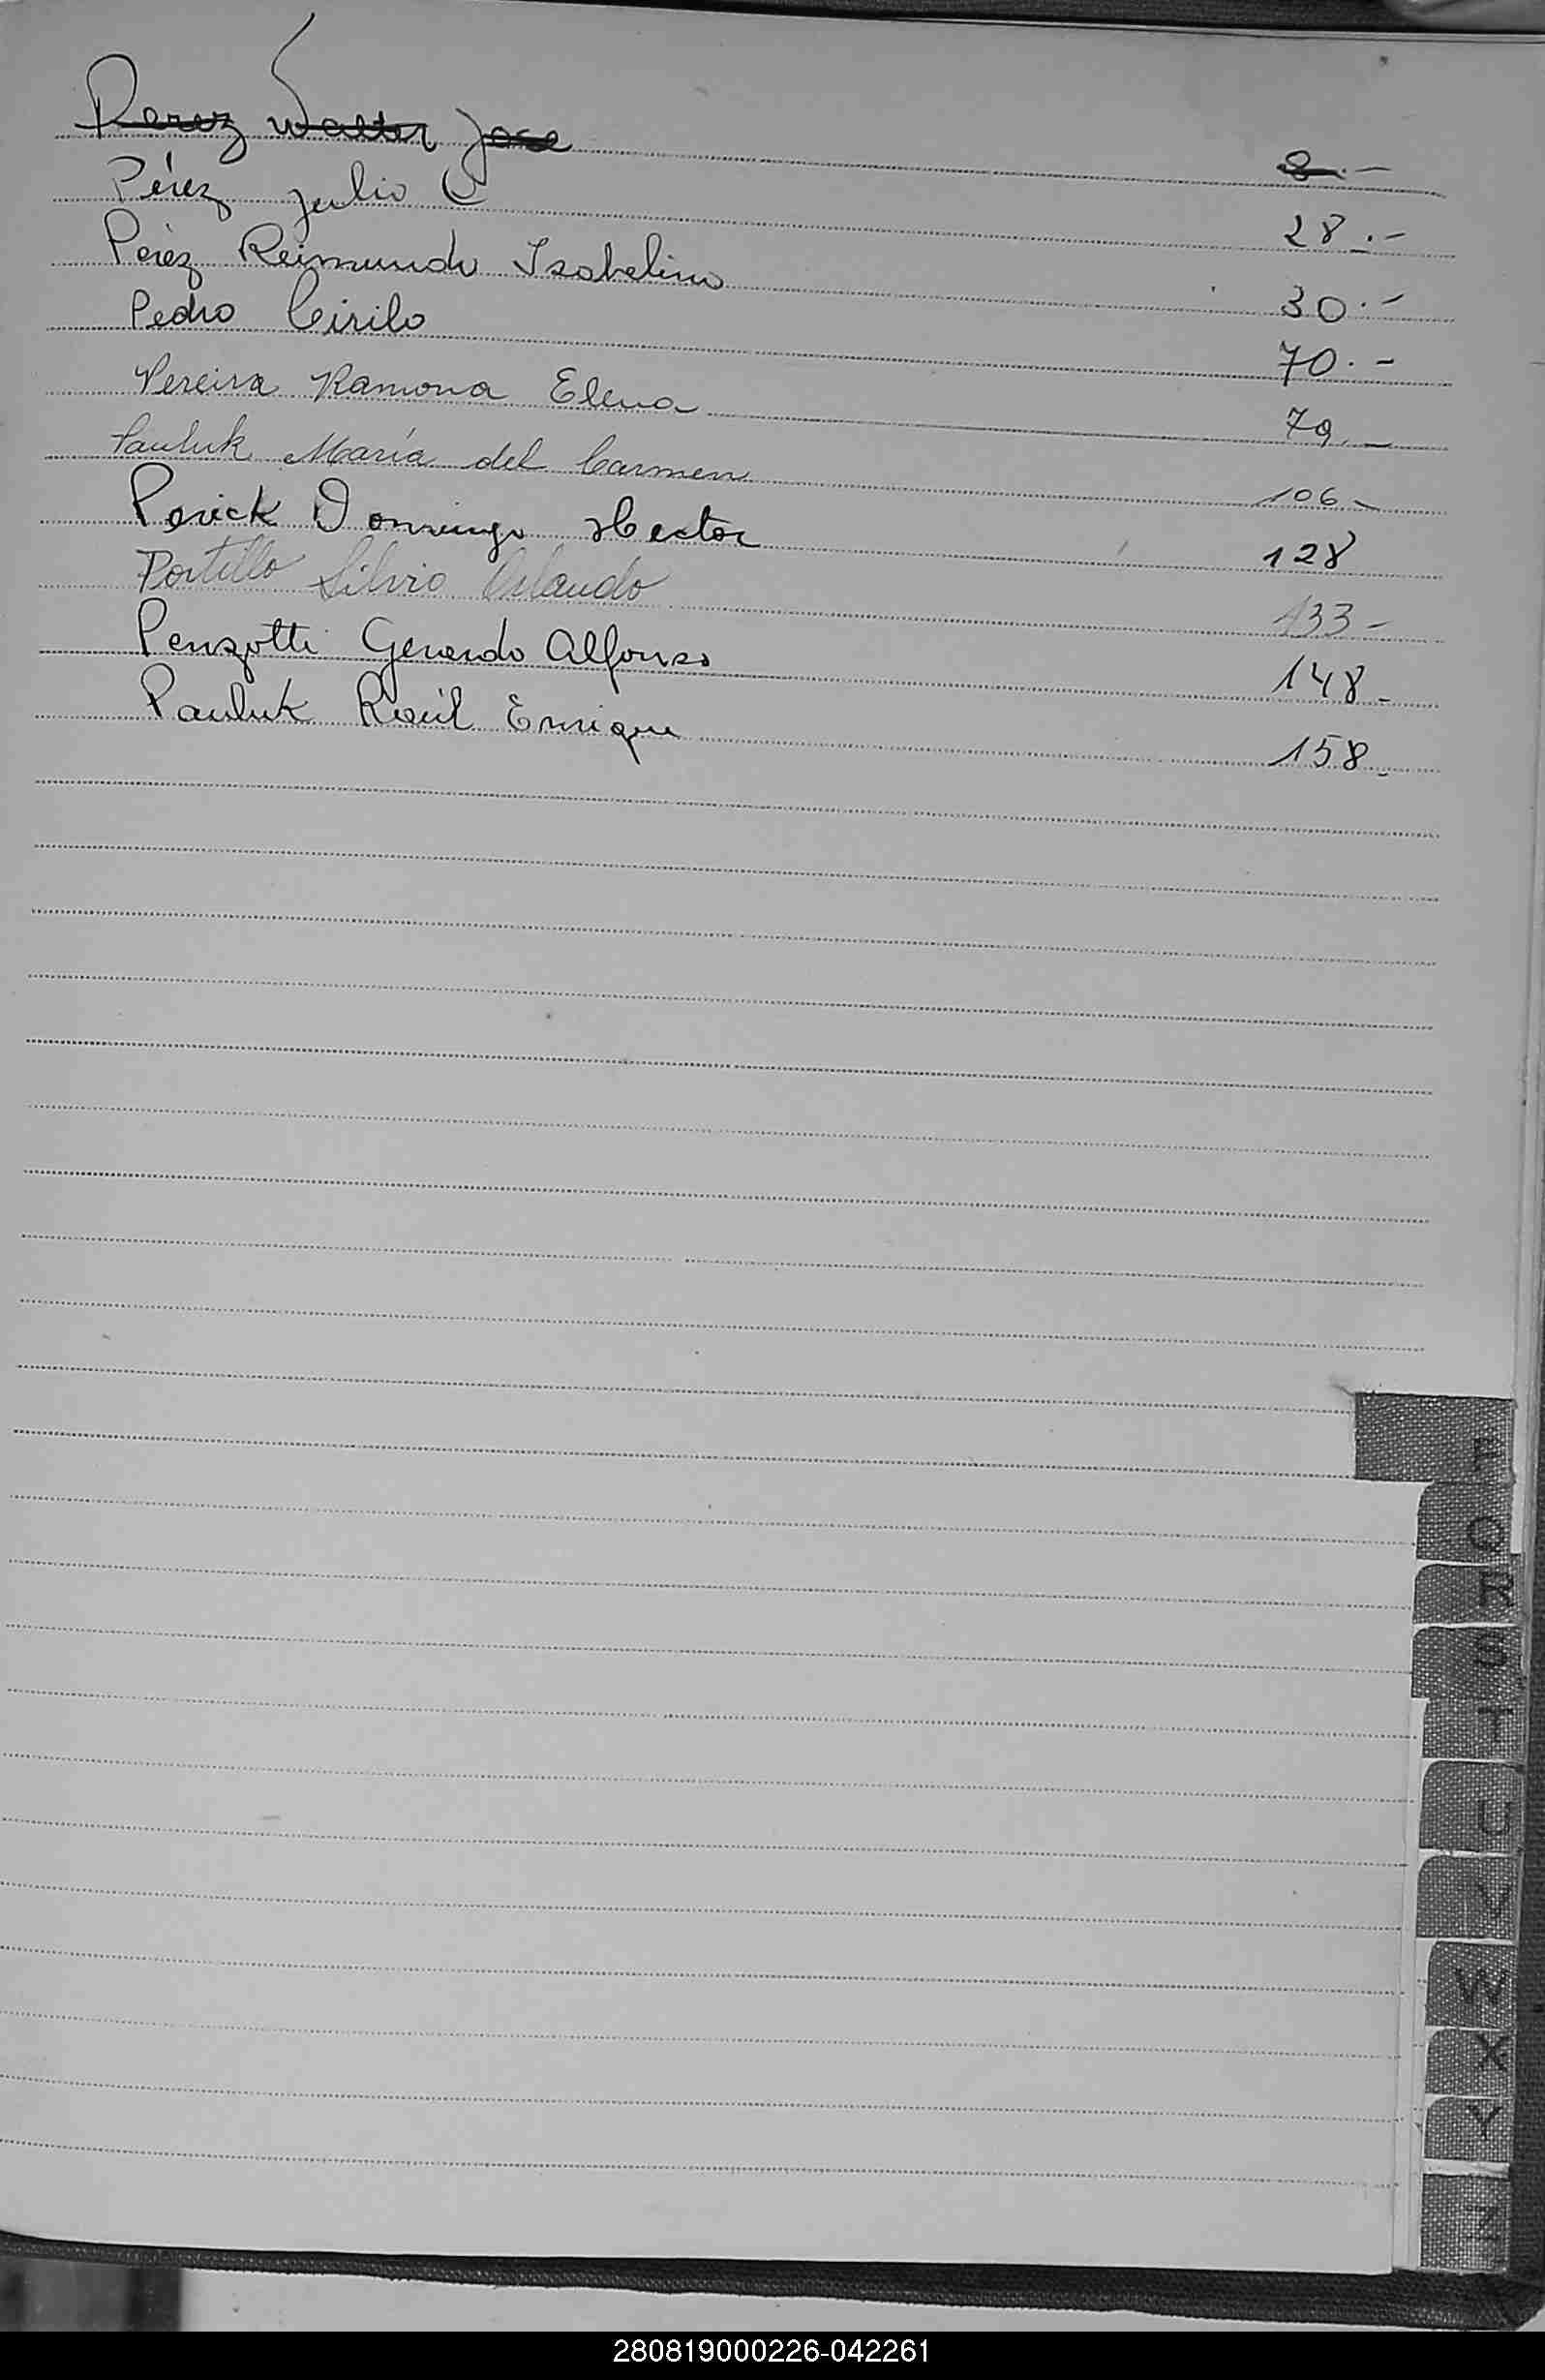 Perez Walter Jose 8.-
Pérez Julio C 28.-
Pérez Reimundo Isabelino 30.-
Pedro Cirilo 70.-
Pereira Ramona Elena 79.-
Pauluk María del Carmen 106-
Perick Domingo Hector 128
Portillo Silvio Orlando 133-
Penzotti Gerardo Alfonso 148-
Pauluk Raúl Enrique 158-
P
Q
R
S
T
U
V
W
X
Y
Z
280819000226-042261